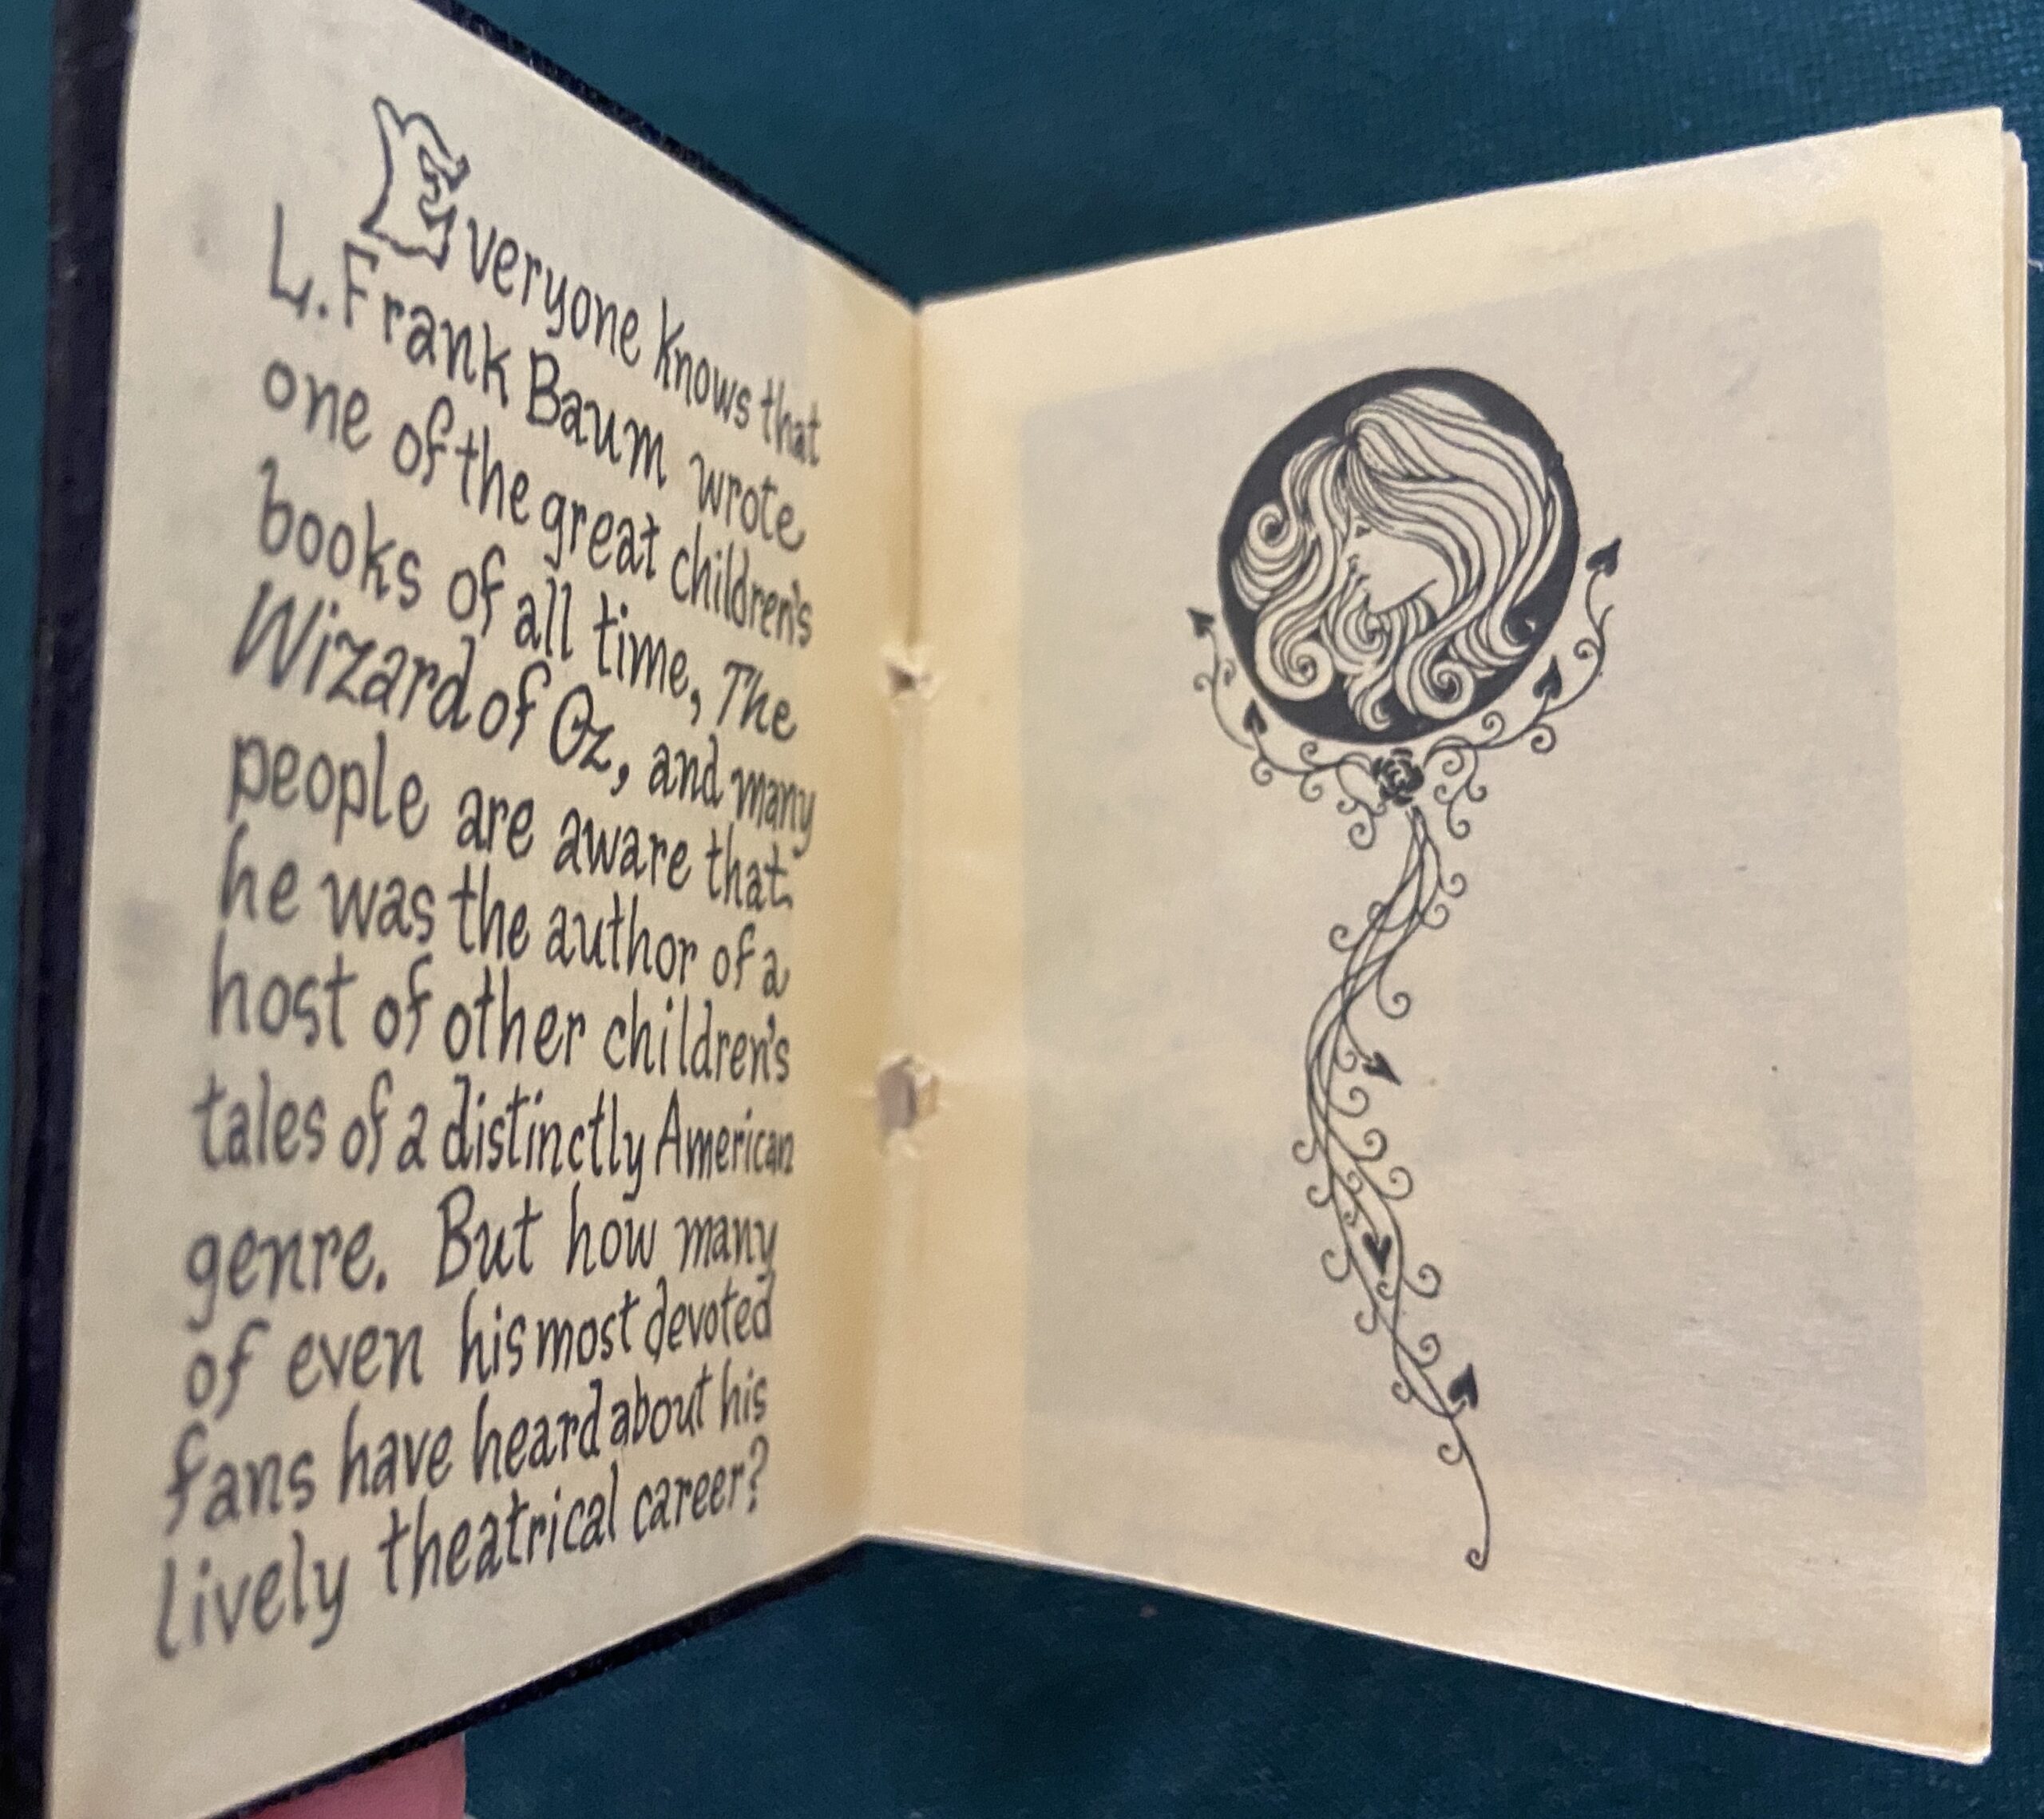 Everyone knows that
L. Frank Baum wrote
one of the great children's
books of all time, The
Wizard of Oz, and many
people are aware that
he was the author of a
host of other children's
tales of a distinctly American
genre. But how many
of even his most devoted
fans have heard about his
lively theatrical career?